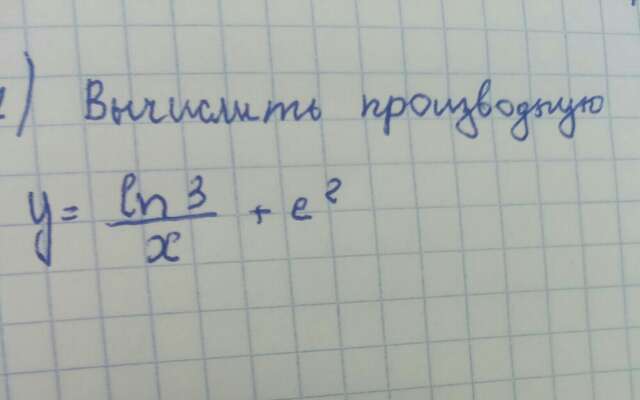 1) Вычислить производную
y = ln 3 / x + e²